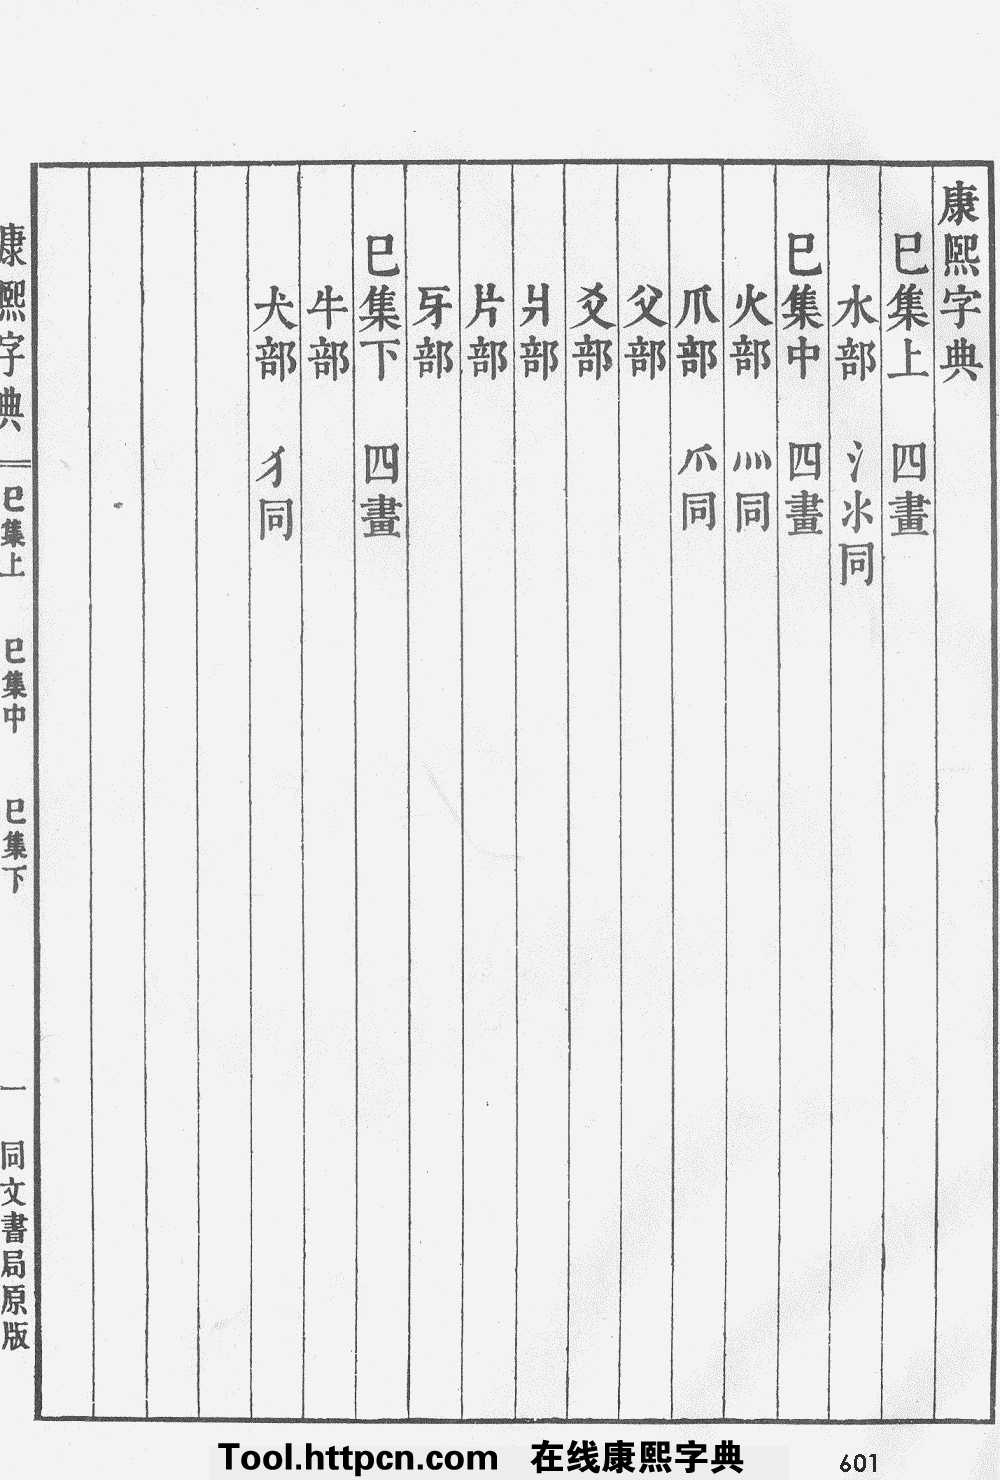 康熙字典
巳集上 四畫
水部 氵氺同
巳集中 四畫
火部 灬同
爪部 爫同
父部
爻部
爿部
片部
牙部
巳集下 四畫
牛部
犬部 犭同
康熙字典 巳集上 巳集中 巳集下 一 同文書局原版
Tool.httpcn.com 在线康熙字典
601